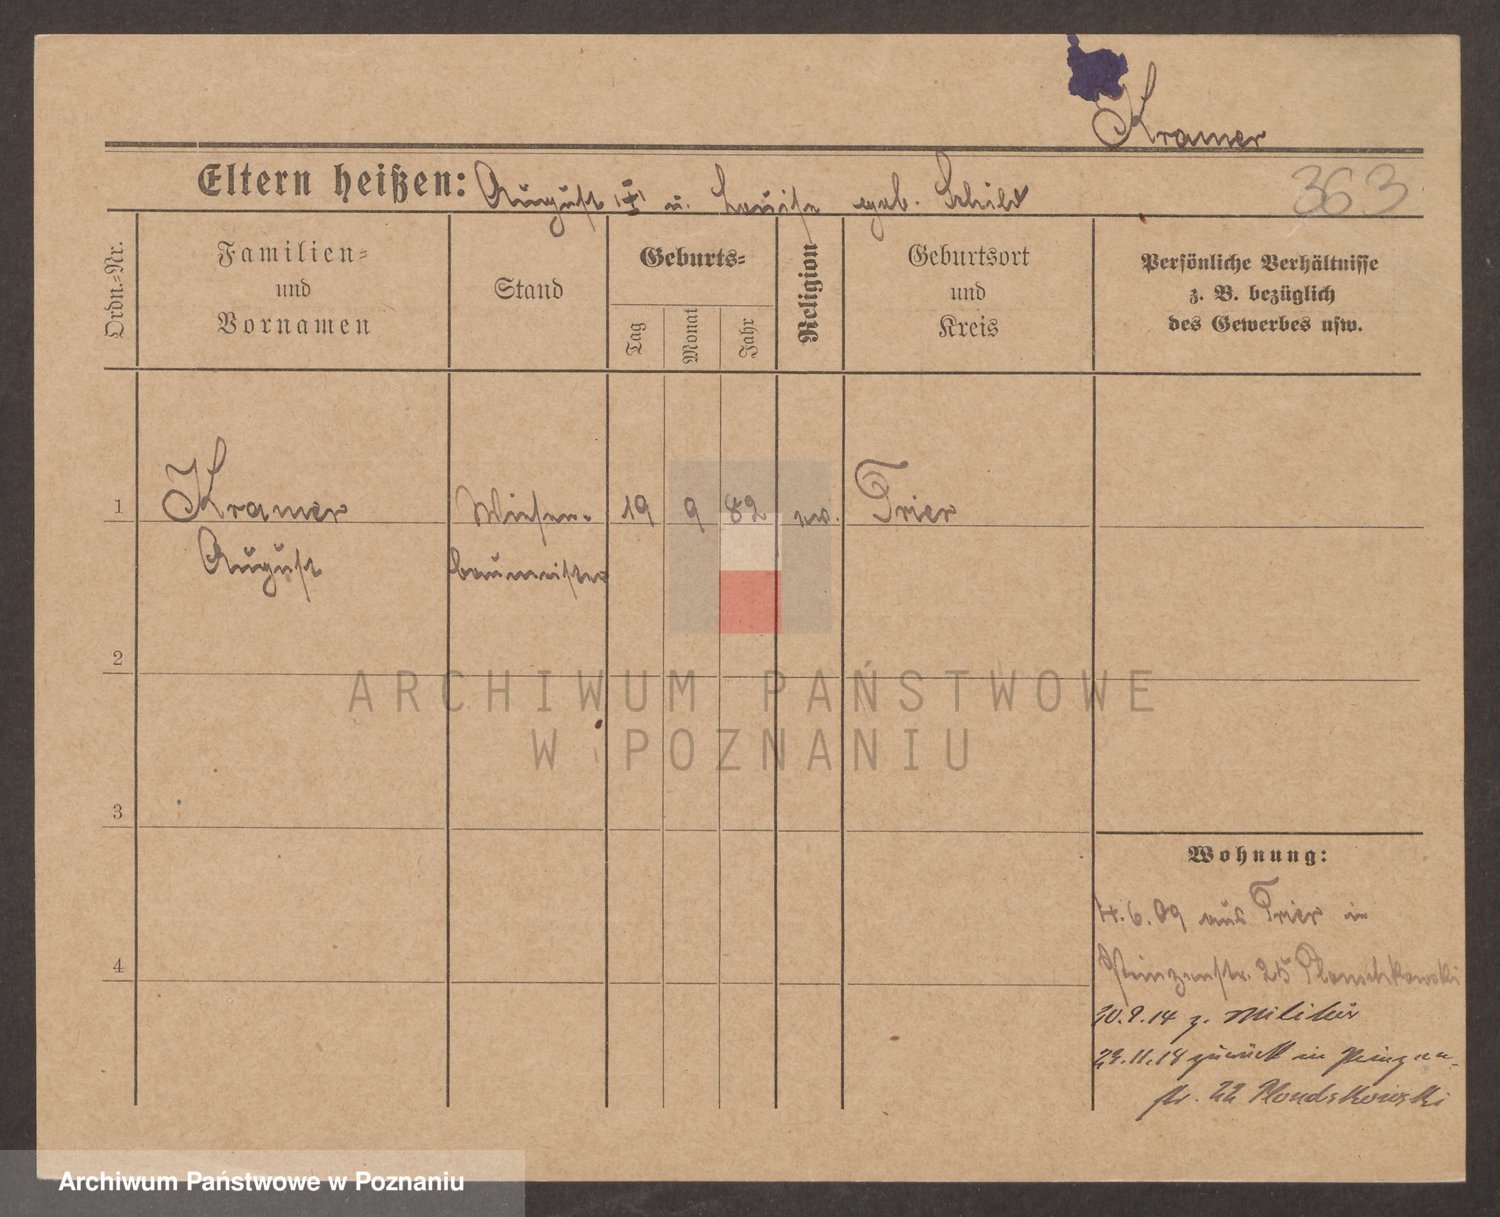 Kramer
Eltern heißen: August u. Louise geb. Schild
363
Ordn.-Nr.
Familien=
und
Vornamen
Stand
Geburts=
Tag
Monat
Jahr
Religion
Geburtsort
und
Kreis
Persönliche Verhältnisse
z. B. bezüglich
des Gewerbes usw.
1 Kramer Wiesen- 19 9 82 ev. Trier
August baumeister
2
ARCHIWUM PAŃSTWOWE
W POZNANIU
3
Wohnung:
4.6.09 aus Trier in
4
Prinzenstr. 25
30.9.14 z. Militär
23.11.18 zurück in Prinzen-
str. 22
Archiwum Państwowe w Poznaniu